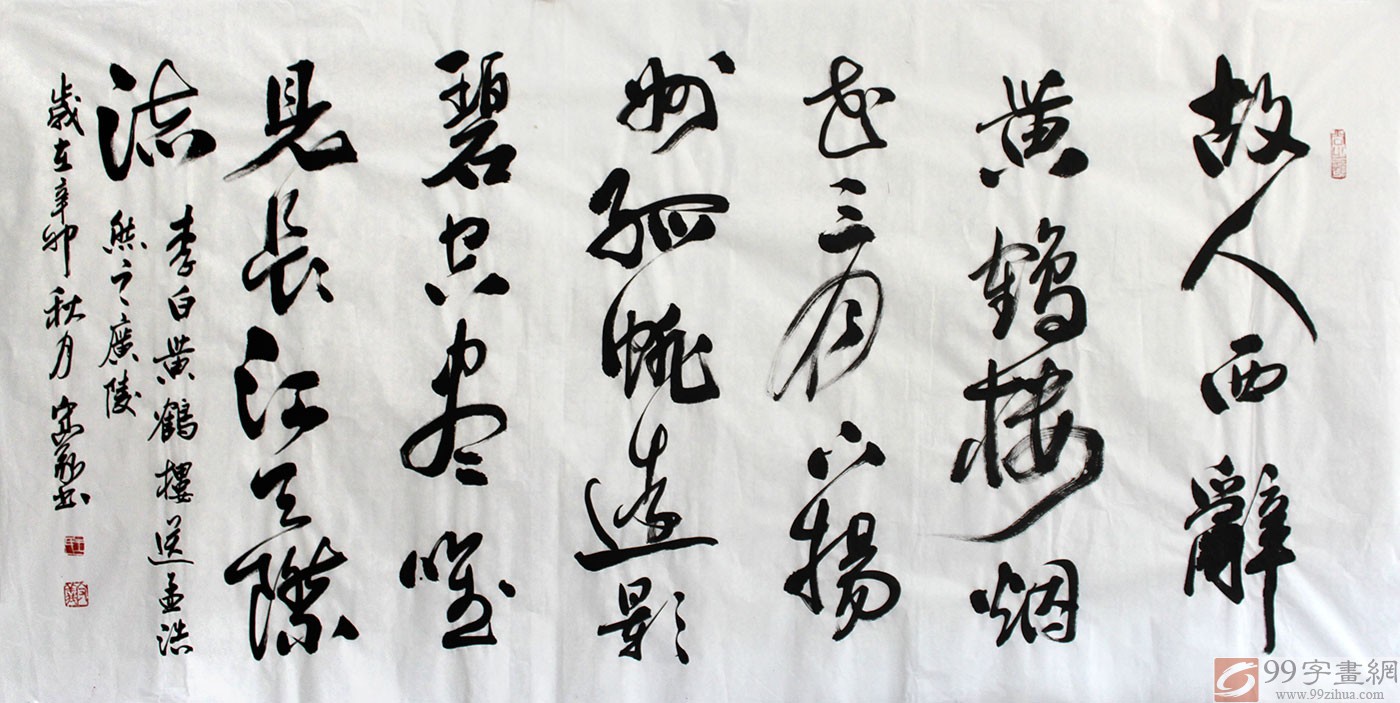 故人西辭
黄鹤楼烟
花三月下揚
州孤帆遠影
碧空尽唯
見長江天際
流
李白黄鶴樓送孟浩
然之廣陵
歲在辛卯秋月
99字畫網
www.99zihua.com